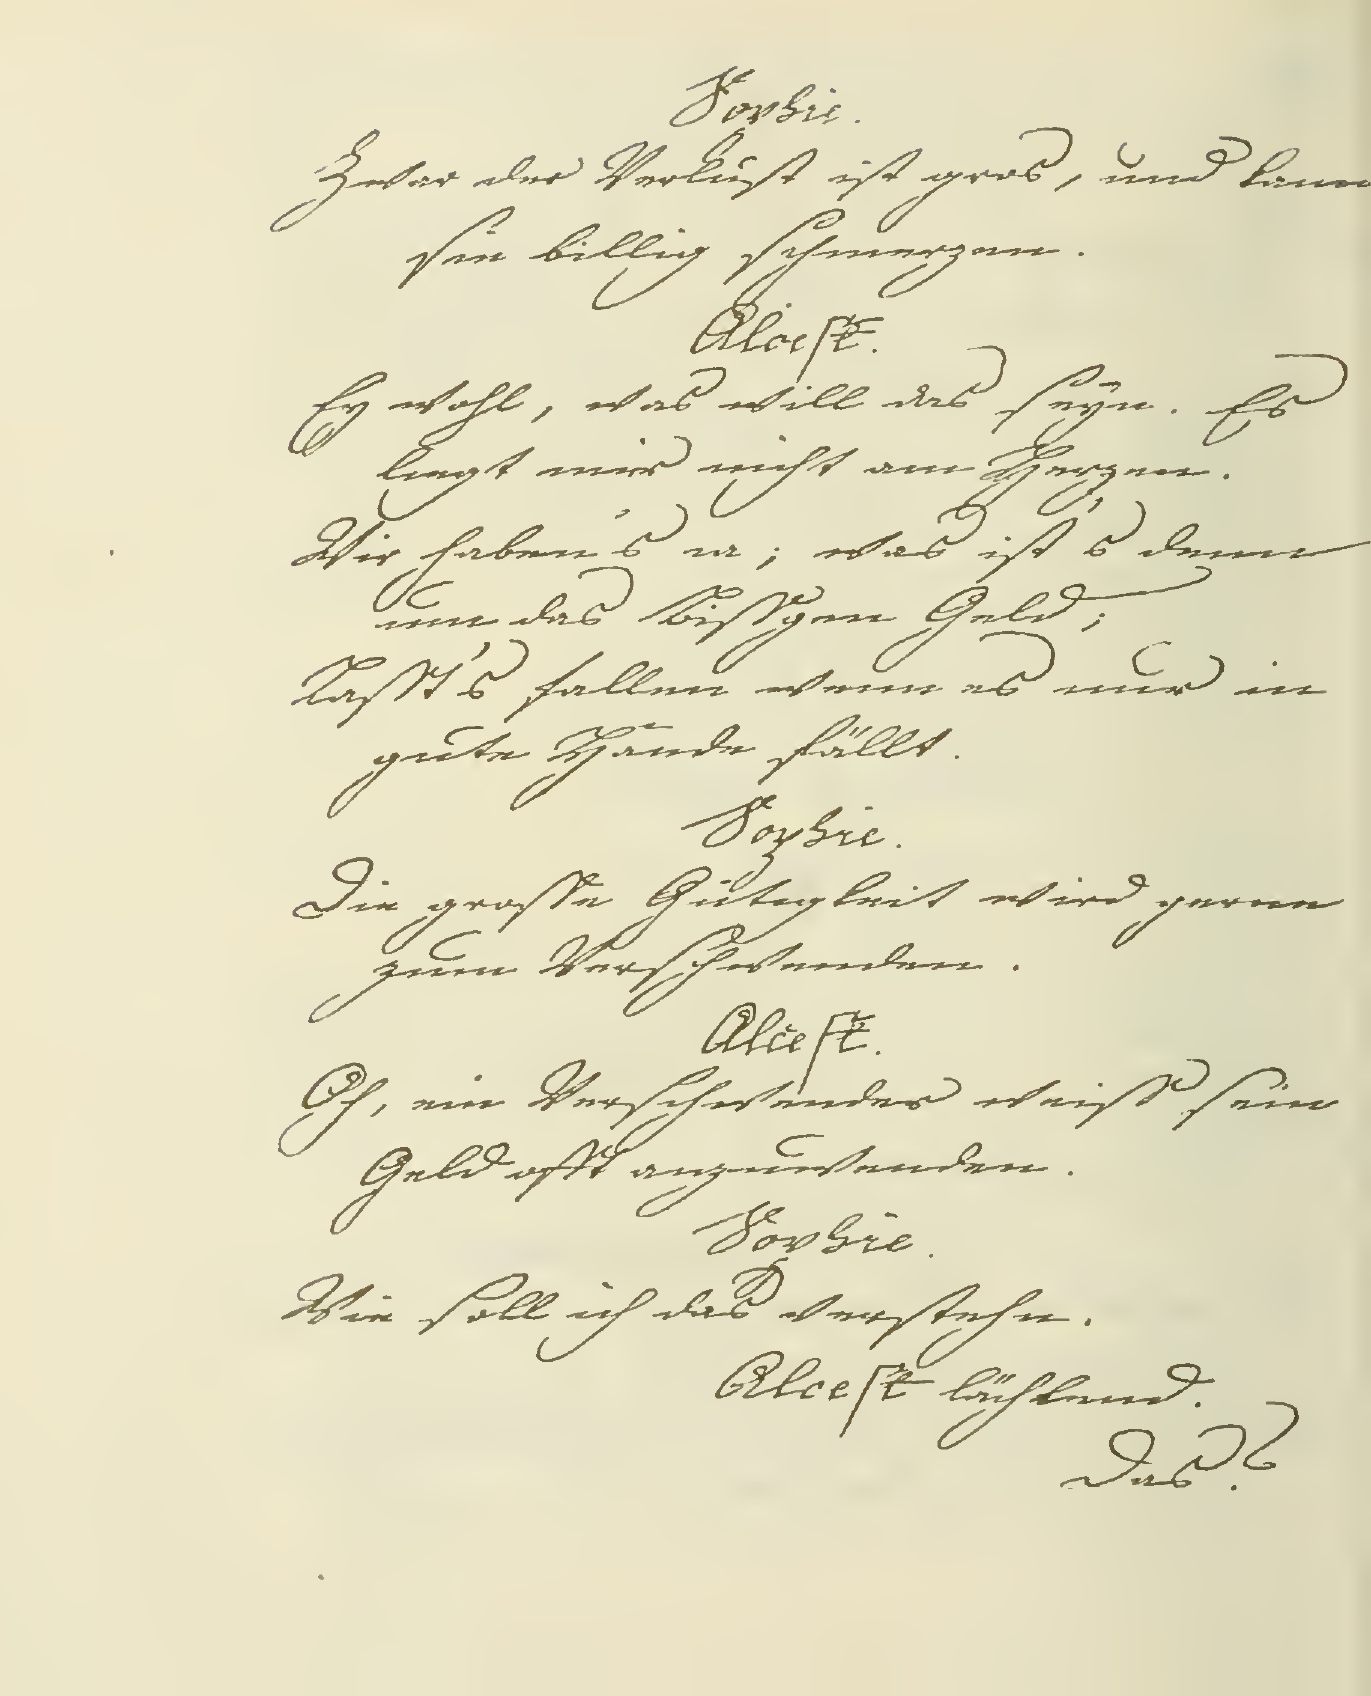 Sophie.
Zwar der Verlust ist gros, und kann
sie billig schmerzen.
Alcest.
Ey wohl, was will das seyn. Es
liegt mir nicht am Herzen.
Wir haben's ia; was ist's denn
um das bissgen Geld;
Lasst's fallen wenn es nur in
gute Hände fällt.
Sophie.
Die grosse Gütigkeit wird gerne
zum Verschwenden.
Alcest.
Oh, ein Verschwender weiss sein
Geld offt anzuwenden.
Sophie.
Wie soll ich das verstehn.
Alcest lächlend.
Das?